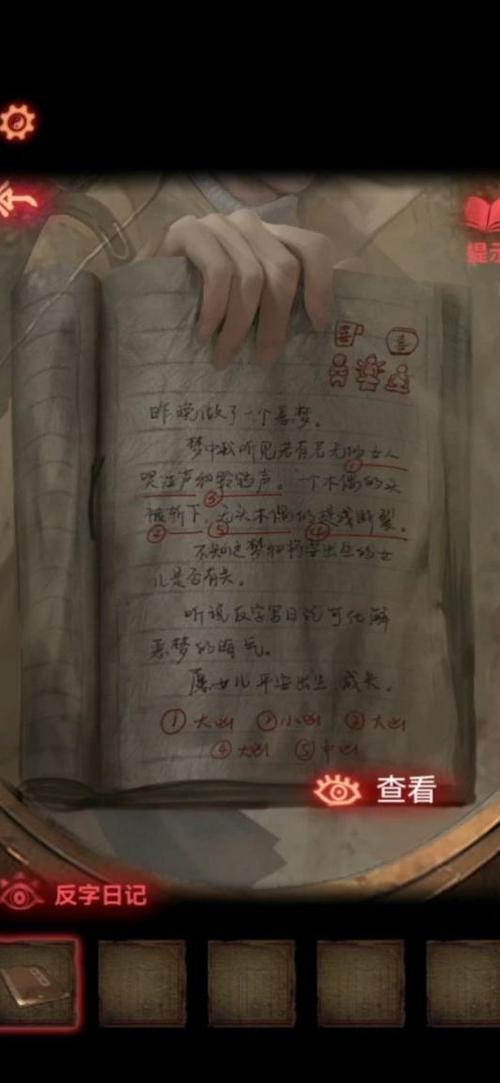 提示
喜 喜
昨晚做了一个恶梦。
梦中我听见若有若无的女人
①
哭泣声和铃铛声。一个木偶的头
③
被斩下,无头木偶的提线断裂。
② ⑤ ④
不知这梦和将要出生的女
儿是否有关。
听说反字写日记可化解
恶梦的晦气。
愿女儿平安出生 成长。
①大凶 ②小凶 ③大凶
④大凶 ⑤中凶
查看
反字日记